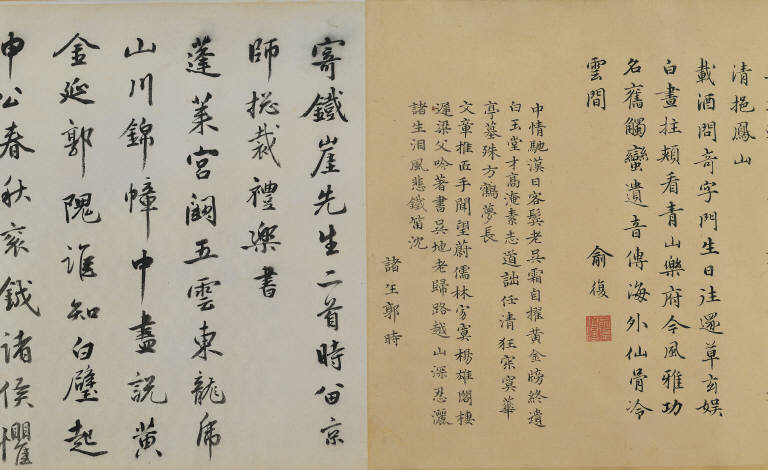 清挹鳳山
載酒問奇字門生日注還草玄娛
白晝拄頰看青山樂府今風雅功
名舊觸蠻遺音傳海外仙骨冷
雲間
俞復
中情馳漢日客鬢老吳霜自擢黃金牓終遺
白玉堂才高淹素志道詘任清狂寂寞華
亭墓殊方鶴夢長
文章推匠手聞望蔚儒林寂寞楊雄閣棲
遲梁父吟著書吳地老歸路越山深忍灑
諸生泪風悲鐵笛沉
郭時
寄鐵崖先生二首時留京
師總裁禮樂書
蓬萊宮闕五雲東龍虎
山川錦幛中盡說黃
金延郭隗誰知白璧起
申公春秋袞鉞諸侯懼